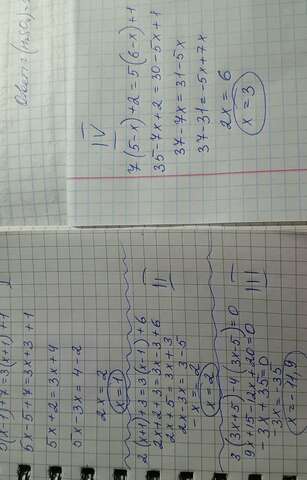 I
5(x-1)+7=3(x+1)+1
5x-5+7=3x+3+1
5x+2=3x+4
5x-3x=4-2
2x=2
x=1
II
2(x+1)+3=3(x-1)+6
2x+2+3=3x-3+6
2x+5=3x+3
2x-3x=3-5
-x=-2
x=2
III
3(3x+5)-4(3x-5)=0
9x+15-12x+20=0
-3x+35=0
-3x=-35
IV
7(5-x)+2=5(6-x)+1
35-7x+2=30-5x+1
37-7x=31-5x
37-31=-5x+7x
2x=6
x=3